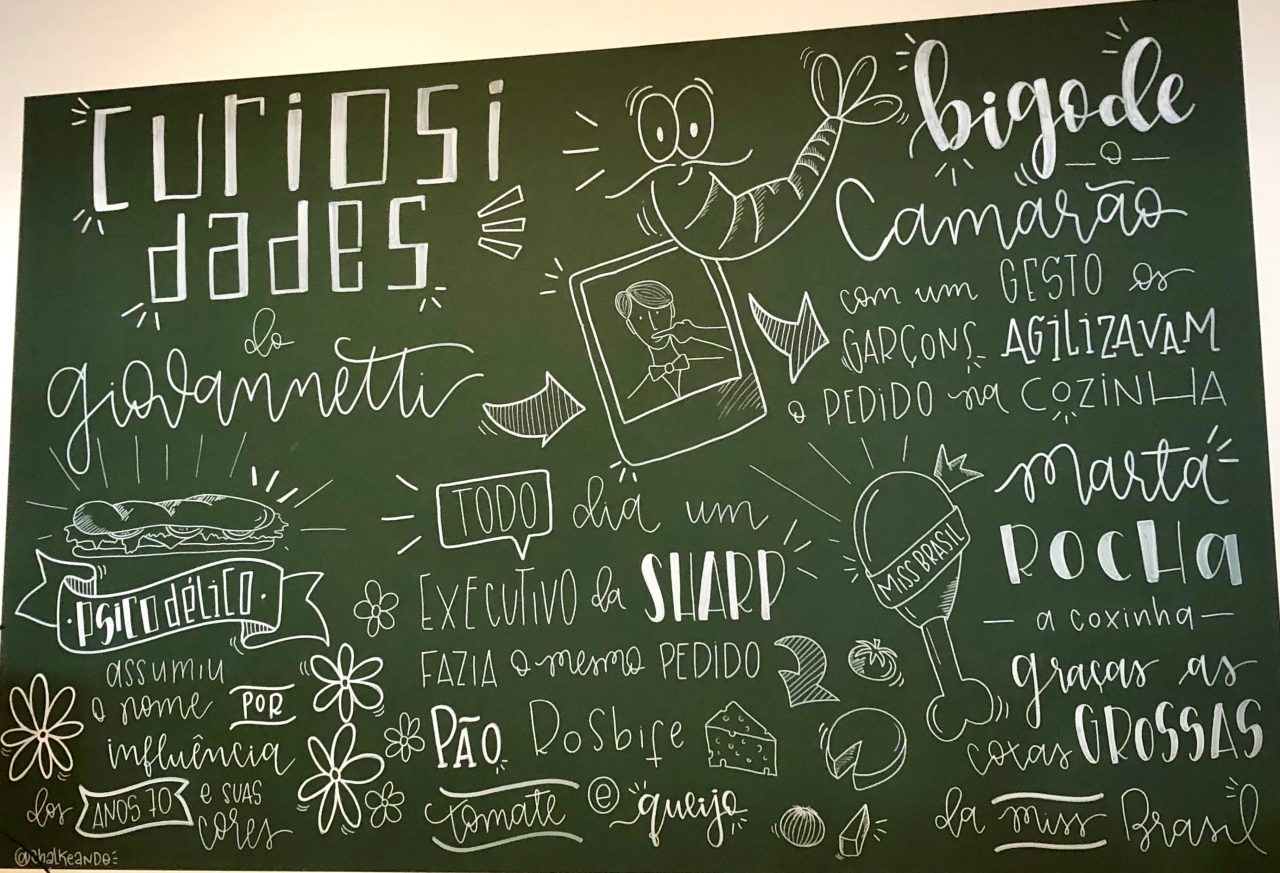 curiosi
dades
do
giovannetti
bigode
o
Camarão
com um GESTO os
GARÇONS AGILIZAVAM
o PEDIDO na COZINHA
PSICODÉLICO
assumiu
o nome POR
influência
dos ANOS 70 e suas
cores
TODO dia um
EXECUTIVO da SHARP
FAZIA o mesmo PEDIDO
PÃO Rosbife
tomate e queijo
MISS BRASIL
Marta
ROCHA
a coxinha
graças as
coxas GROSSAS
da miss Brasil
@chalkeando